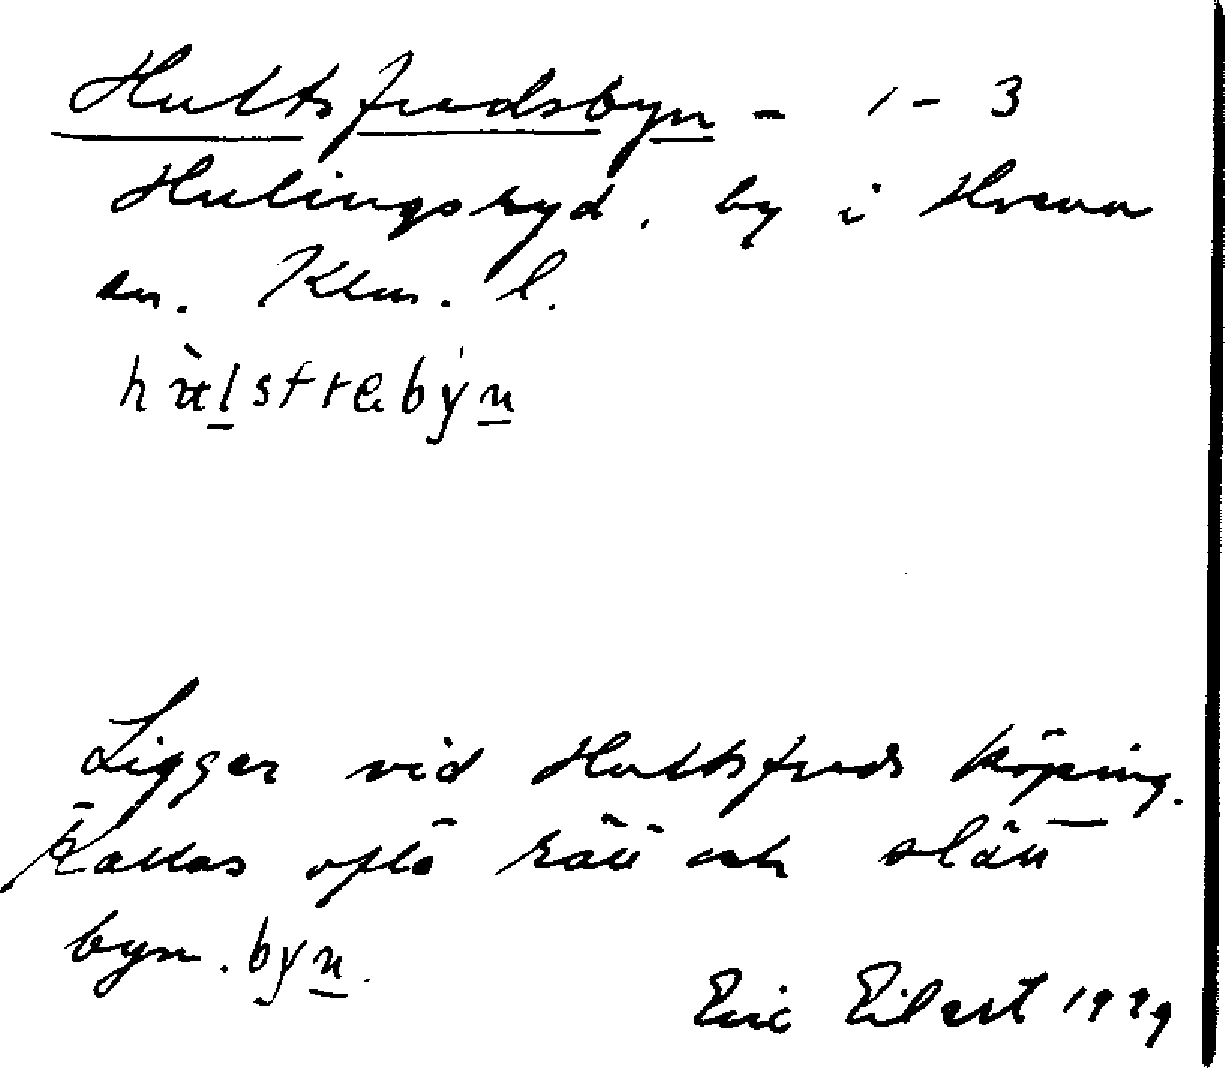 Hultsfredsbyn - 1-3
Hulingsryd, by i Hvena
sn. Klm. l.
Ligger vid Hultsfreds köping.
Kallas ofta rätt och slätt
byn. byn.
Eric Eilert 1929